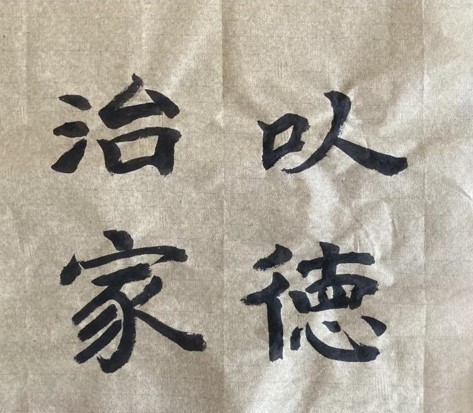 以德
治家